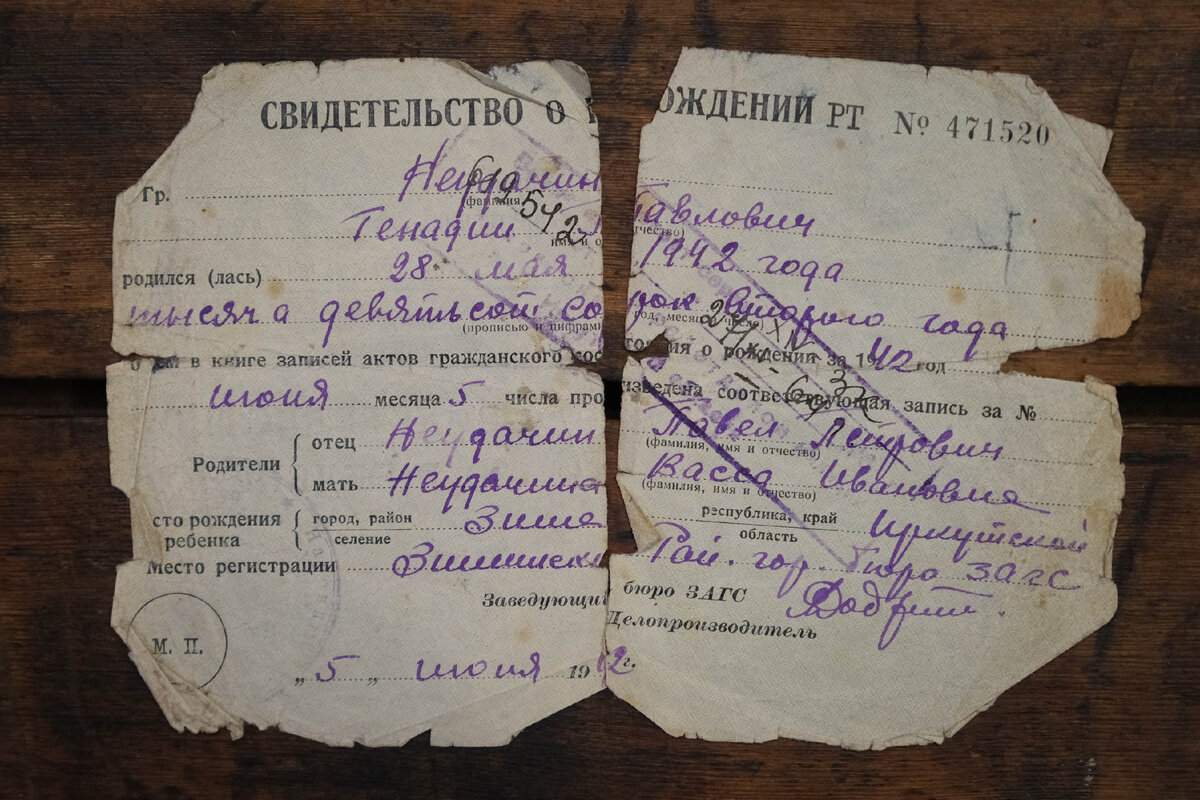 СВИДЕТЕЛЬСТВО О РОЖДЕНИИ РТ № 471520
Гр. Неудачин
(фамилия)
Генадий Павлович
имя и отчество)
родился (лась) 28 мая 1942 года
тысяча девятьсот сорок второго года
(прописью и цифрами год, месяц, число)
о чем в книге записей актов гражданского состояния о рождении за 1942 год
июня месяца 5 числа произведена соответствующая запись за №
Родители
отец Неудачин Павел Петрович
(фамилия, имя и отчество)
мать Неудачина Васса Ивановна
(фамилия, имя и отчество)
сто рождения ребенка
город, район селение Зима
республика, край область Иркутской
Место регистрации Зиминск Рай. гор. бюро ЗАГС
Заведующий бюро ЗАГС
Делопроизводитель
М. П.
„5„ июня 1942 г.